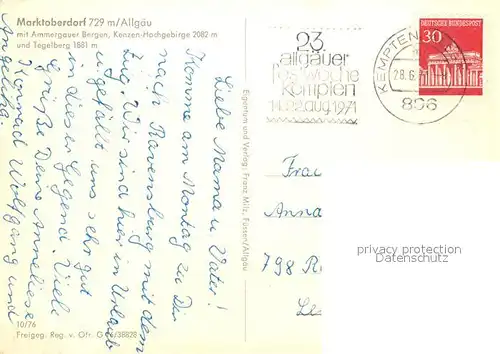 Marktoberdorf 729 m/Allgäu
mit Ammergauer Bergen, Kenzen-Hochgebirge 2082 m
und Tegelberg 1881 m
Liebe Mama u Vater!
Komme am Montag zu Dir
nach Ravensburg mit dem
Zug. Wir sind hier in Urlaub
gefällt uns sehr gut
in dieser Gegend. Viele
Grüße Deine Anneliese
Konrad Wolfgang und
Angelika
10/76
Freigeg. Reg. v. Ofr. G
Eigentum und Verlag: Franz Milz, Füssen/Allgäu
23.
allgäuer
festwoche
kempten
14.-22. aug. 1971
KEMPTEN
28.6.
896
DEUTSCHE BUNDESPOST
30
Frau
Anna
798 R
probably protected by copyright
ansichtskarten-center.de